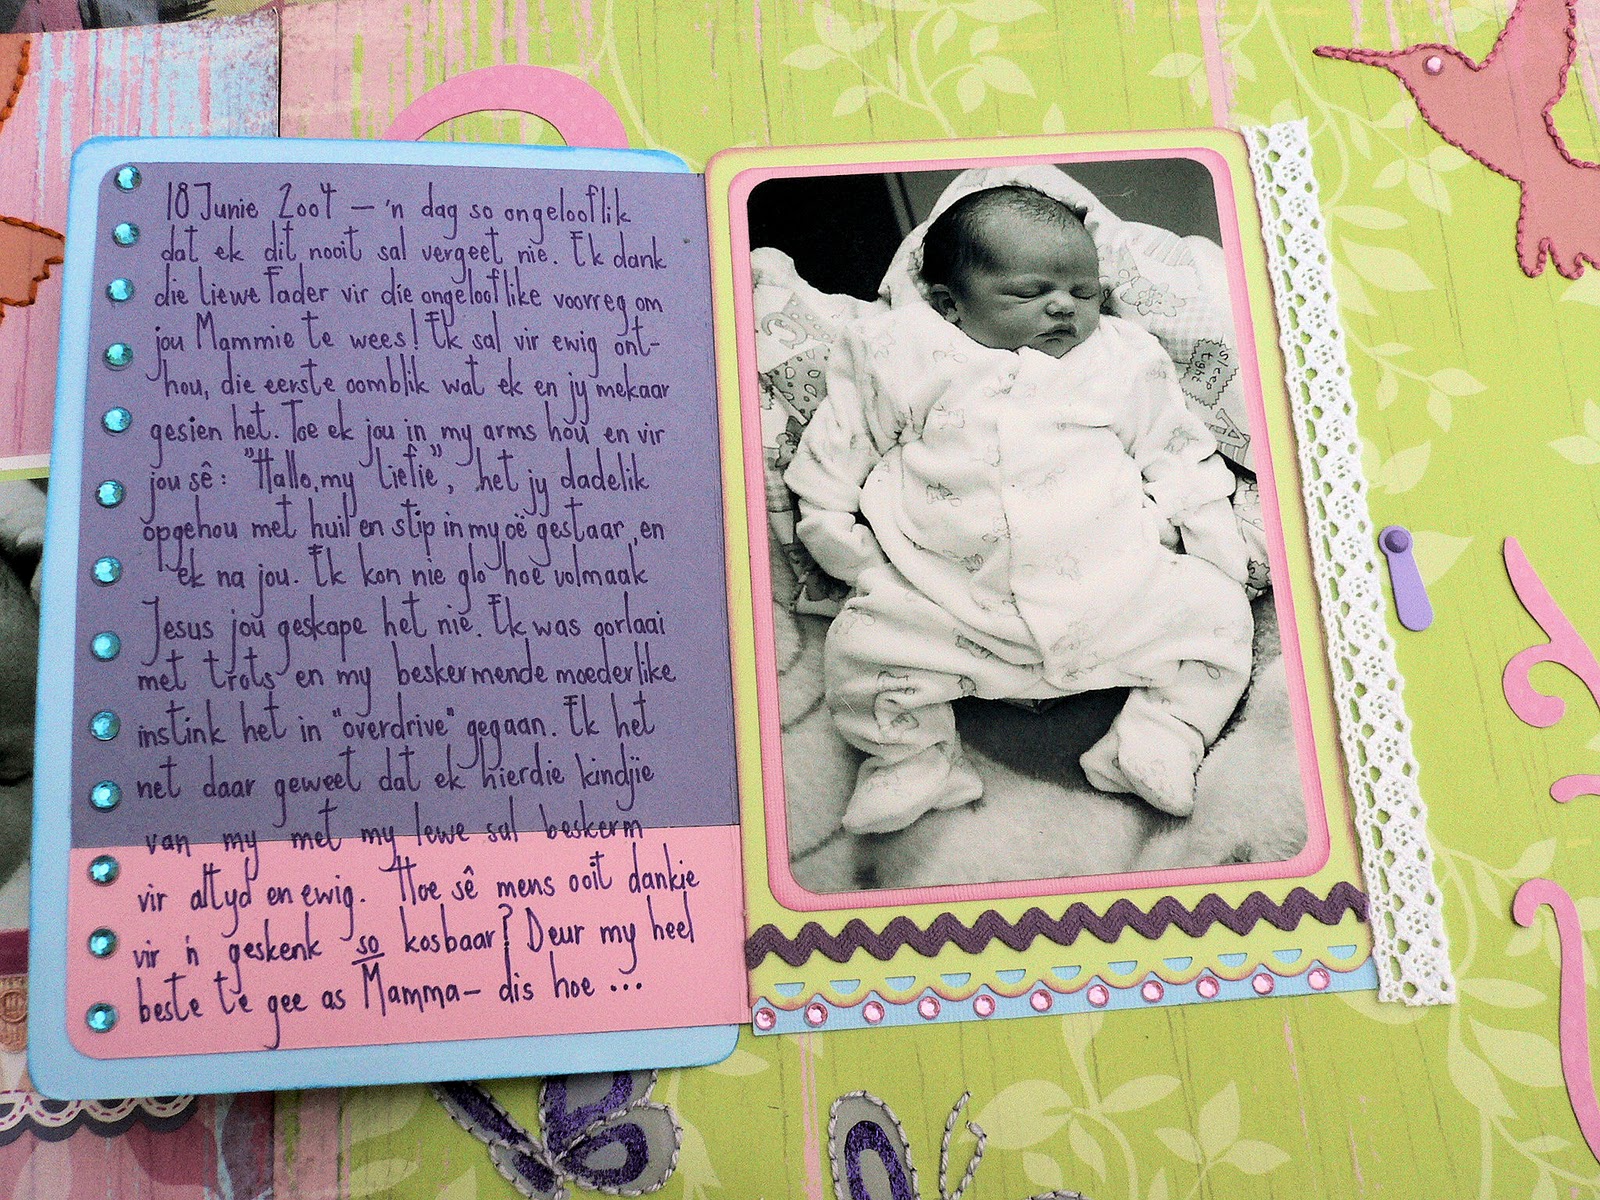 18 Junie 2004 – 'n dag so ongelooflik
dat ek dit nooit sal vergeet nie. Ek dank
die liewe Vader vir die ongelooflike voorreg om
jou Mammie te wees! Ek sal vir ewig ont-
hou, die eerste oomblik wat ek en jy mekaar
gesien het. Toe ek jou in my arms hou en vir
jou sê: "Hallo, my liefie", het jy dadelik
opgehou met huil en stip in my oë gestaar, en
ek na jou. Ek kon nie glo hoe volmaak
Jesus jou geskape het nie. Ek was oorlaai
met trots en my beskermende moederlike
instink het in "overdrive" gegaan. Ek het
net daar geweet dat ek hierdie kindjie
van my met my lewe sal beskerm
vir altyd en ewig. Hoe sê mens ooit dankie
vir 'n geskenk so kosbaar? Deur my heel
beste te gee as Mamma – dis hoe ...
sleep
tight